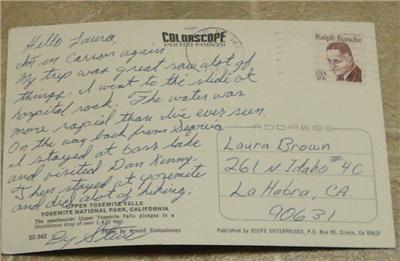 Hello Laura,
Im in Carson again.
My trip was great saw alot of
things. I went to the slide at
hospital rock. The water was
more rapid than I've ever seen.
On the way back from Sequoia
I stayed at bass lake
and visited Dan Kenny.
I then stayed at yosemite
and did alot of hiking.
By Steve
COLORSCOPE
PHOTO-PRINTS
Ralph Bunche
USA
20c
ADDRESS
Laura Brown
261 N Idaho #4C
La Habra, CA.
90631
UPPER YOSEMITE FALLS
YOSEMITE NATIONAL PARK, CALIFORNIA
The spectacular Upper Yosemite Falls plunges in a
thunderous drop of over 1,430 feet.
SC-342
Photo by Arnold Compolongo
Published by SCOPE ENTERPRISES, P.O. Box 85, Clovis, Ca 93613